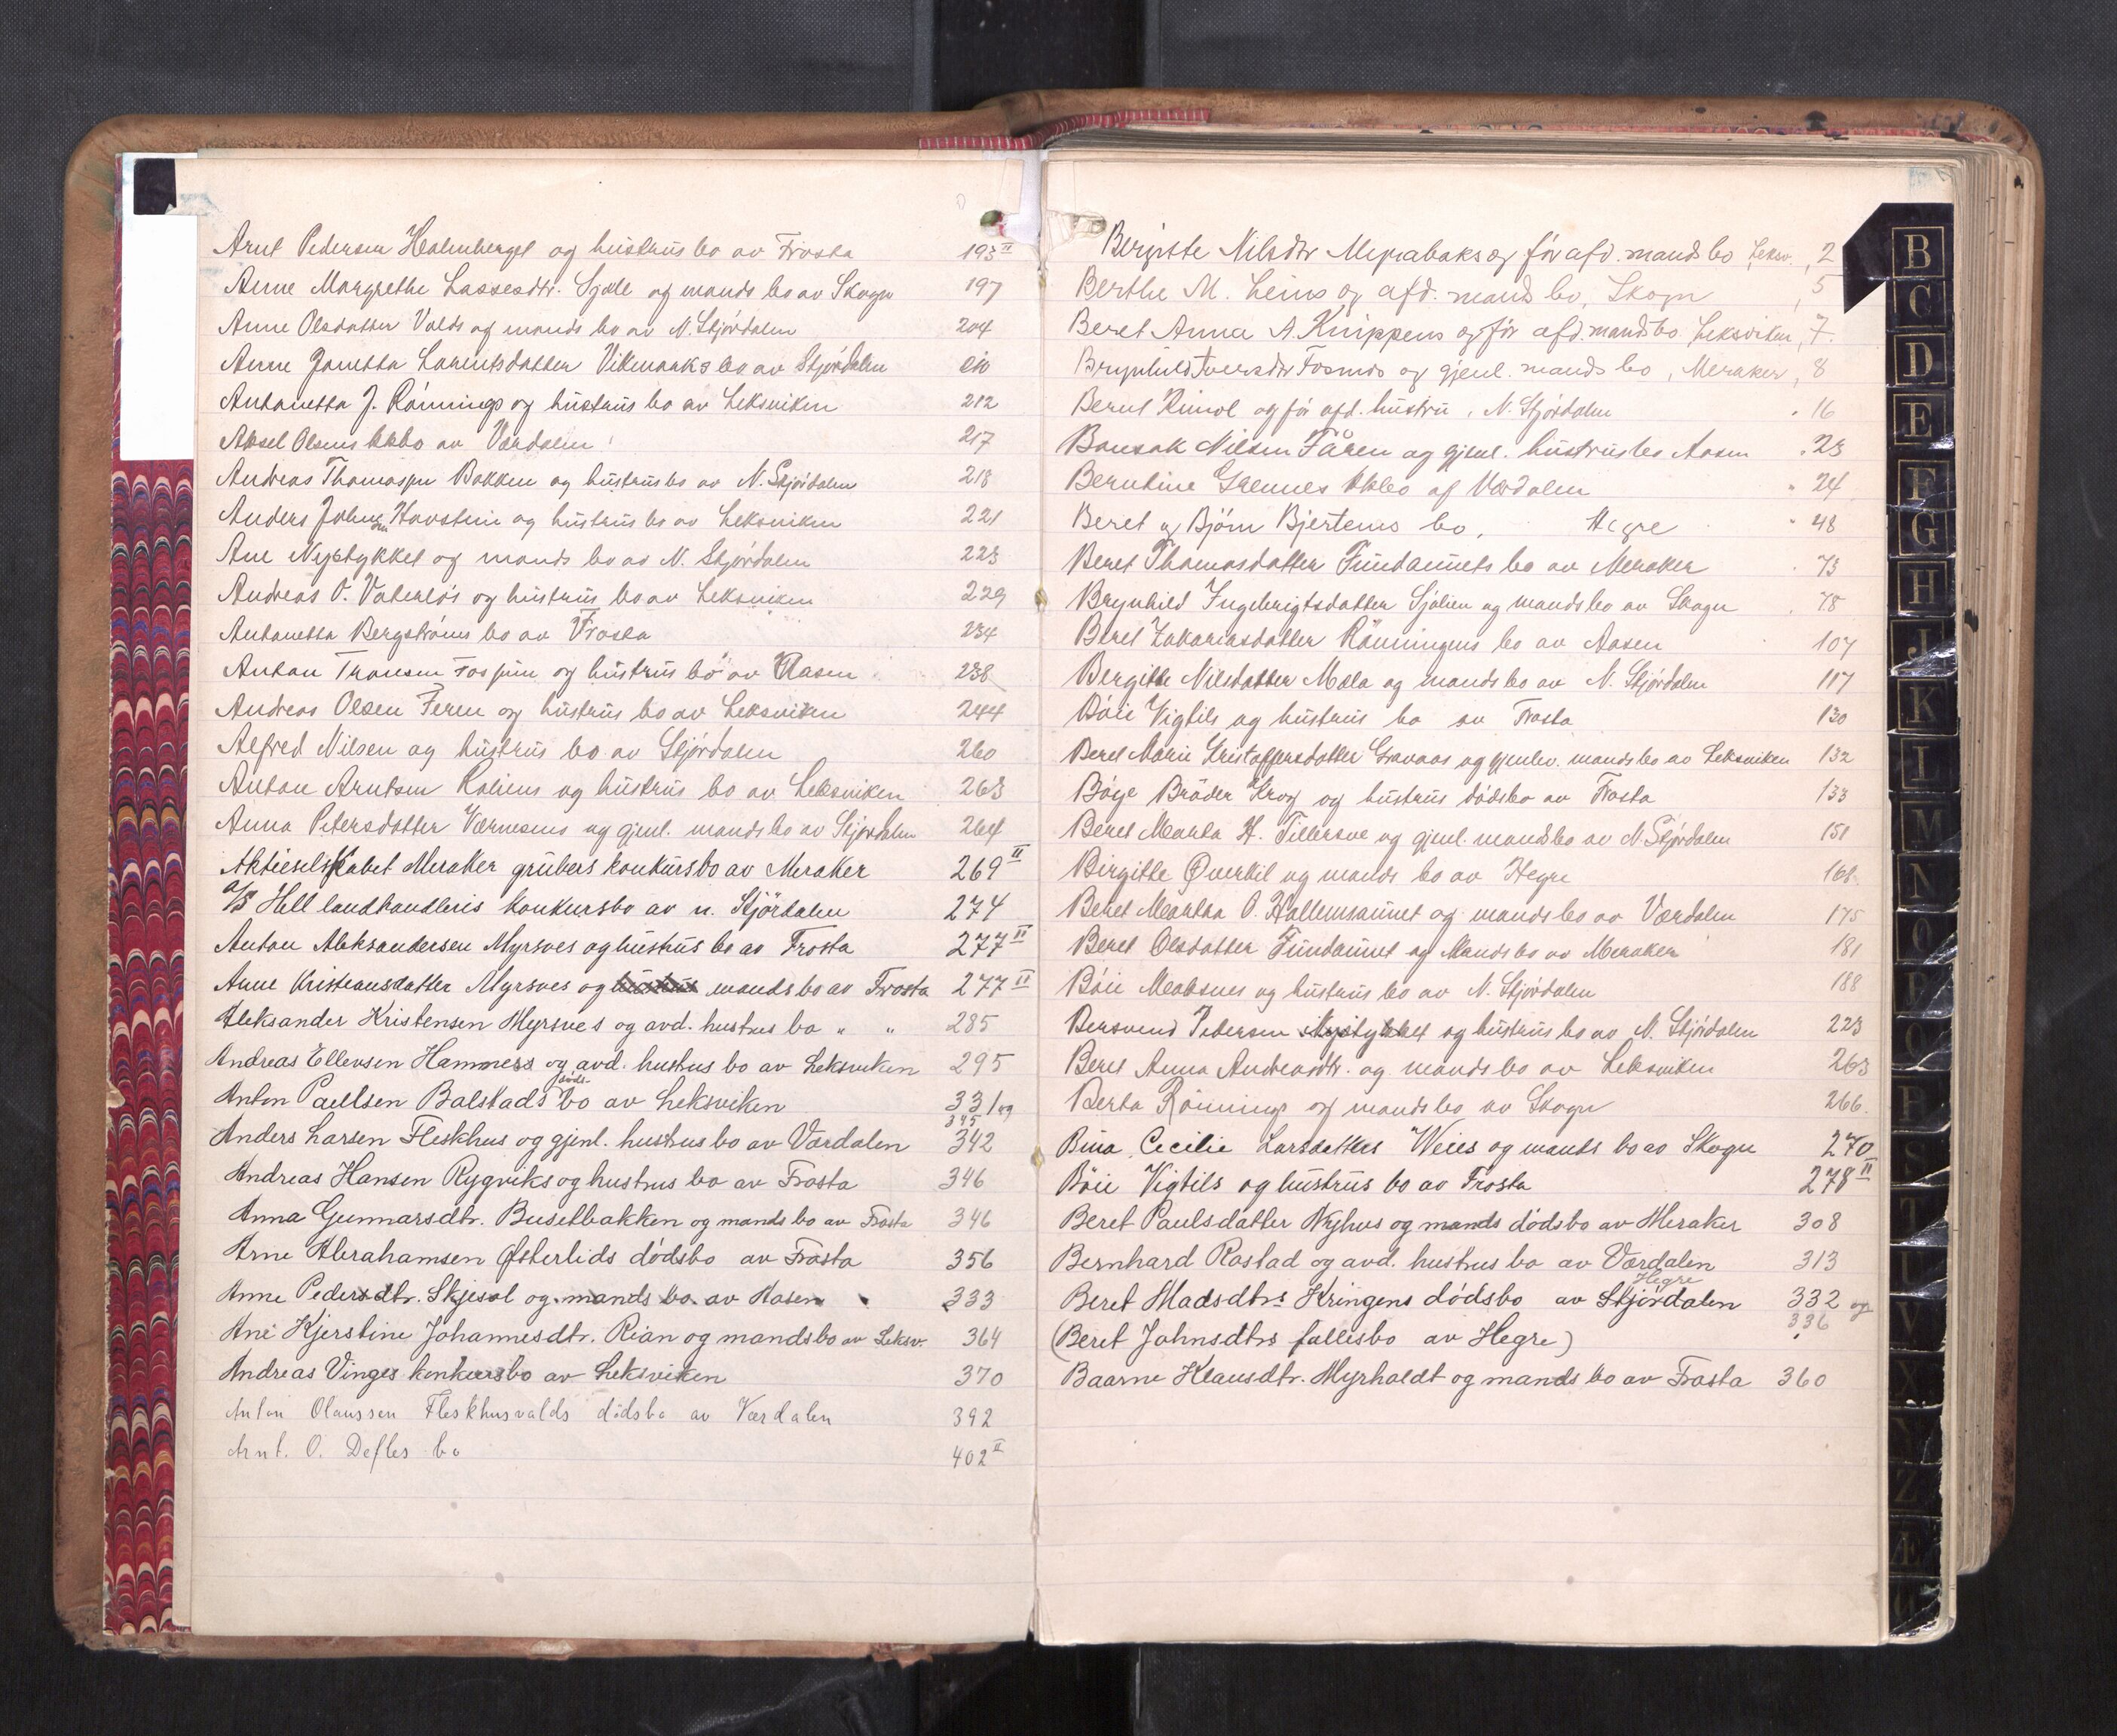 Arnt Pedersen Holmberget og hustrus bo av Frosta 193 II
Anne Margrethe Lassesdtr. Sjæle og mands bo av Skogn 197
Anne Olsdatter Valds og mands bo av N. Stjørdalen 204
Anne Janetta Laritsdatter Vikmarks bo av Stjørdalen
Antonetta J. Rønnings og hustrus bo av Leksviken 212
Aksel Olsens bo av Værdalen 217
Andreas Thomassen Bakken og hustrus bo av N. Stjørdalen 218
Anders Johnsen Havstein og hustrus bo av Leksviken 221
Ane Nystykket og mands bo av N. Stjørdalen 223
Andreas O. Vaterløs og hustrus bo av Leksviken 229
Antonetta Bergstrøms bo av Frosta 234
Anton Tronsen og hustrus bo av Aasen 238
Andreas Olsen Feren og hustrus bo av Leksviken 244
Alfred Nilsen og hustrus bo av Stjørdalen 260
Anton Arntsen Koliens og hustrus bo av Leksviken 263
Anna Petersdatter Værnesens og gjenl. mands bo av Stjørdalen 264
Aktieselskabet Meraker grubers konkursbo av Meraker 269 II
A/S Hell landhandleris konkursbo av n. Stjørdalen 274
Anton Aleksandersen Myrsves og hustrus bo av Frosta 277 II
Anne Kristiansdatter Myrsves og mands bo av Frosta 277 II
Aleksander Kristensen Myrsves og avd. hustrus bo " " 285
Andreas Ellevsen Hammers og avd. hustrus bo av Leksviken 295
Anton Paulsen Balstads døds bo av Leksviken 331 og 345
Anders Larsen Fleskhus og gjenl. hustrus bo av Værdalen 342
Andreas Hansen Rygviks og hustrus bo av Frosta 346
Anna Gunnarsdtr. Busetbakken og mands bo av Frosta 346
Arne Abrahamsen Østerlids dødsbo av Frosta 356
Anne Pedersdtr. Skjesol og mands bo av Aasen 333
Ane Kjerstine Johannesdtr. Rian og mands bo av Leksv. 364
Andreas Vinges konkursbo av Leksviken 370
Anton Olaussen Fleskhusvalds dødsbo av Værdalen 392
Arnt. O. Defles bo 402 II
Bergitte Nilsdtr Myrabaks og før afd. mands bo Leksv. 2
Berthe M. Leins og afd. mands bo, Skogn 5
Beret Anna A. Knippens og før afd. mands bo Leksviken, 7.
Brynhild Iversdtr Fosmos og gjenl. mands bo, Meraker, 8
Bernt Rimol og før afd. hustru, N. Stjørdalen 16
Nilsen Fåren og gjenl. hustrus bo Aasen 23
Berntine Grennes bo af Værdalen 24
Beret og Bjørn Bjertems bo, Hegre 48
Beret Thomasdatter Fundaunets bo av Meraker 73
Brynhild Ingebrigtsdatter Sjølien og mands bo av Skogn 78
Beret Zakariasdatter Rønningens bo av Aasen 107
Bergitte Nilsdatter Mæla og mands bo av N. Stjørdalen 117
Bøie Vigtils og hustrus bo av Frosta 130
Beret Marie Kristoffersdatter Gravaas og gjenlev. mands bo av Leksviken 132
Bøye Brøder Krog og hustrus dødsbo av Frosta 133
Beret Marta H. Tillersve og gjenl. mands bo av N. Stjørdalen 151
Birgitte Øverkil og mands bo av Hegre 168
Beret Martha O. Hallemsaunet og mands bo av Værdalen 175
Beret Olsdatter Fundaunet og Mands bo av Meraker 181
Bøie Moksnes og hustrus bo av N. Stjørdalen 188
Bersvend Pedersen Nystykket og hustrus bo av N. Stjørdalen 223
Beret Anna Andreasdtr. og mands bo av Leksviken 263
Berta Rønnings og mands bo av Skogn 266.
Bina Cecilie Larsdatters Weies og mands bo av Skogn 270
Bøie Vigtils og hustrus bo av Frosta 278 II
Beret Paulsdatter Nyhus og mands dødsbo av Meraker 308
Bernhard Rostad og avd. hustrus bo av Værdalen 313
Beret Madsdtrs Kringens dødsbo av Stjørdalen Hegre 332 og 336
(Beret Johnsdtrs fallisbo av Hegre)
Baarne Klausdtr. Myrholdt og mands bo av Frosta 360
B
C
D
E
F
G
H
J
K
L
M
N
O
P
Q
R
S
T
U
V
X
Y
Z
Æ
Ø